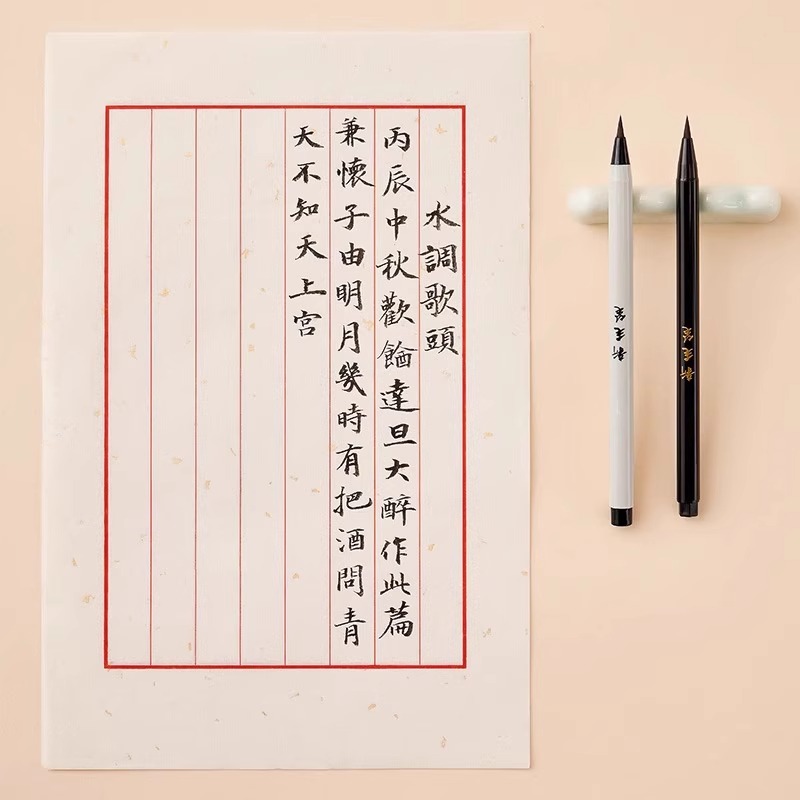 水調歌頭
丙辰中秋歡達旦大醉作此篇
兼懷子由明月幾時有把酒問青
天不知天上宮